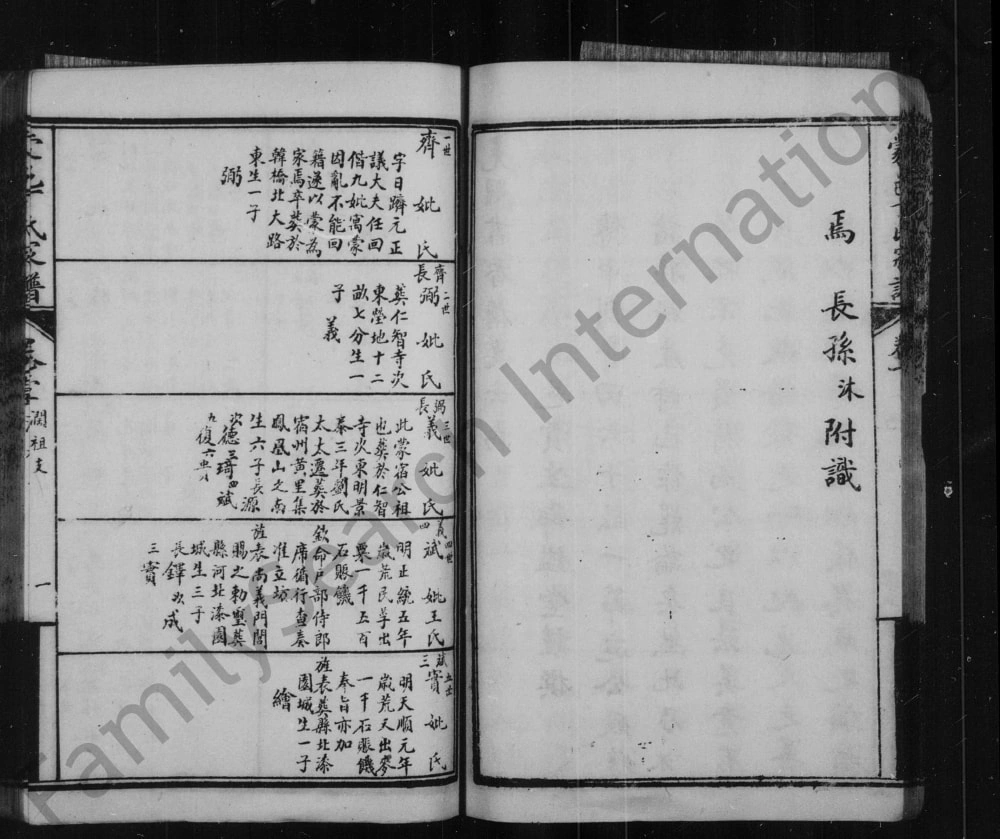 焉 長孫沐附識
一世
齊 妣 氏
字日躋元正
議大夫任回
偕九妣寓蒙
因亂不能回
籍遂以蒙為
家焉卒葬於
韓橋北大路
東生一子
弼
齊 二世
長 弼 妣 氏
葬仁智寺次
東塋地十二
畝七分生一
子 義
弼 三世
長 義 妣 氏
此蒙宿公祖
也葬於仁智
寺次東明景
泰三年劉氏
太太遷葬於
宿州黃里集
鳳凰山之南
生六子長源
次德三琦四斌
義 四世
四 斌 妣王氏
明正統五年
歲荒民享出
粟一千五百
石賑饑
欽命戶部侍郎
席循行查奏
准立坊
旌表尚義門閭
賜之勅璽葬
縣河北漆園
城生三子
長鐸次成
三寶
斌 五世
三 寶 妣 氏
明天順元年
歲荒天出麥
一千石賑饑
奉旨亦加
旌表葬縣北漆
園城生一子
繪
潤祖支
一
FamilySearch International